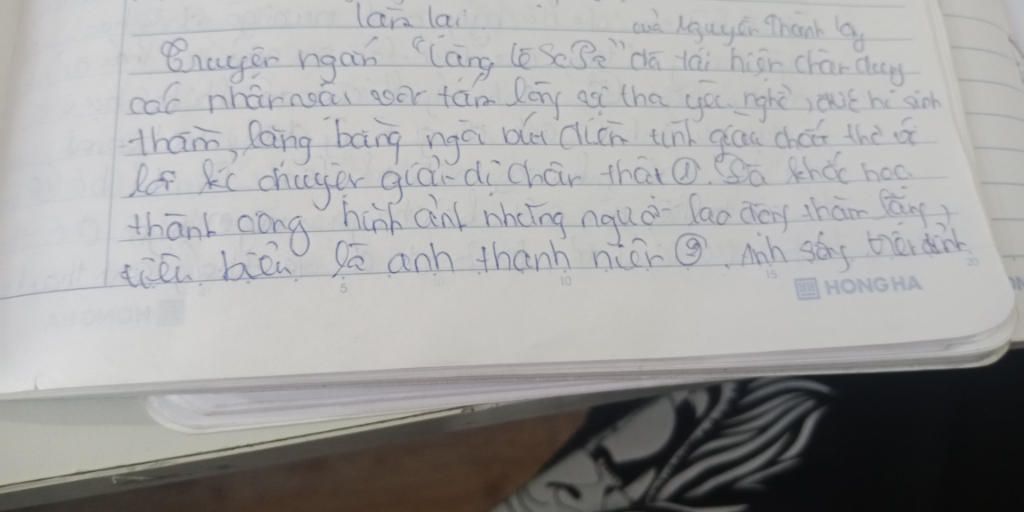 lần lại của Nguyễn Thành Lg
Truyện ngắn "Lặng lẽ SaPa" đã tái hiện chân dung
các nhân vật với tấm lòng tha yêu nghề, hi sinh
thầm lặng bằng ngòi bút chất thơ
lối kể chuyện giản dị chân thật ①. Đã khắc hoạ
thành công hình ảnh những người lao động thầm lặng,
tiêu biểu là anh thanh niên ②. Anh sống trên đỉnh
5 10 15 20
HONG HA